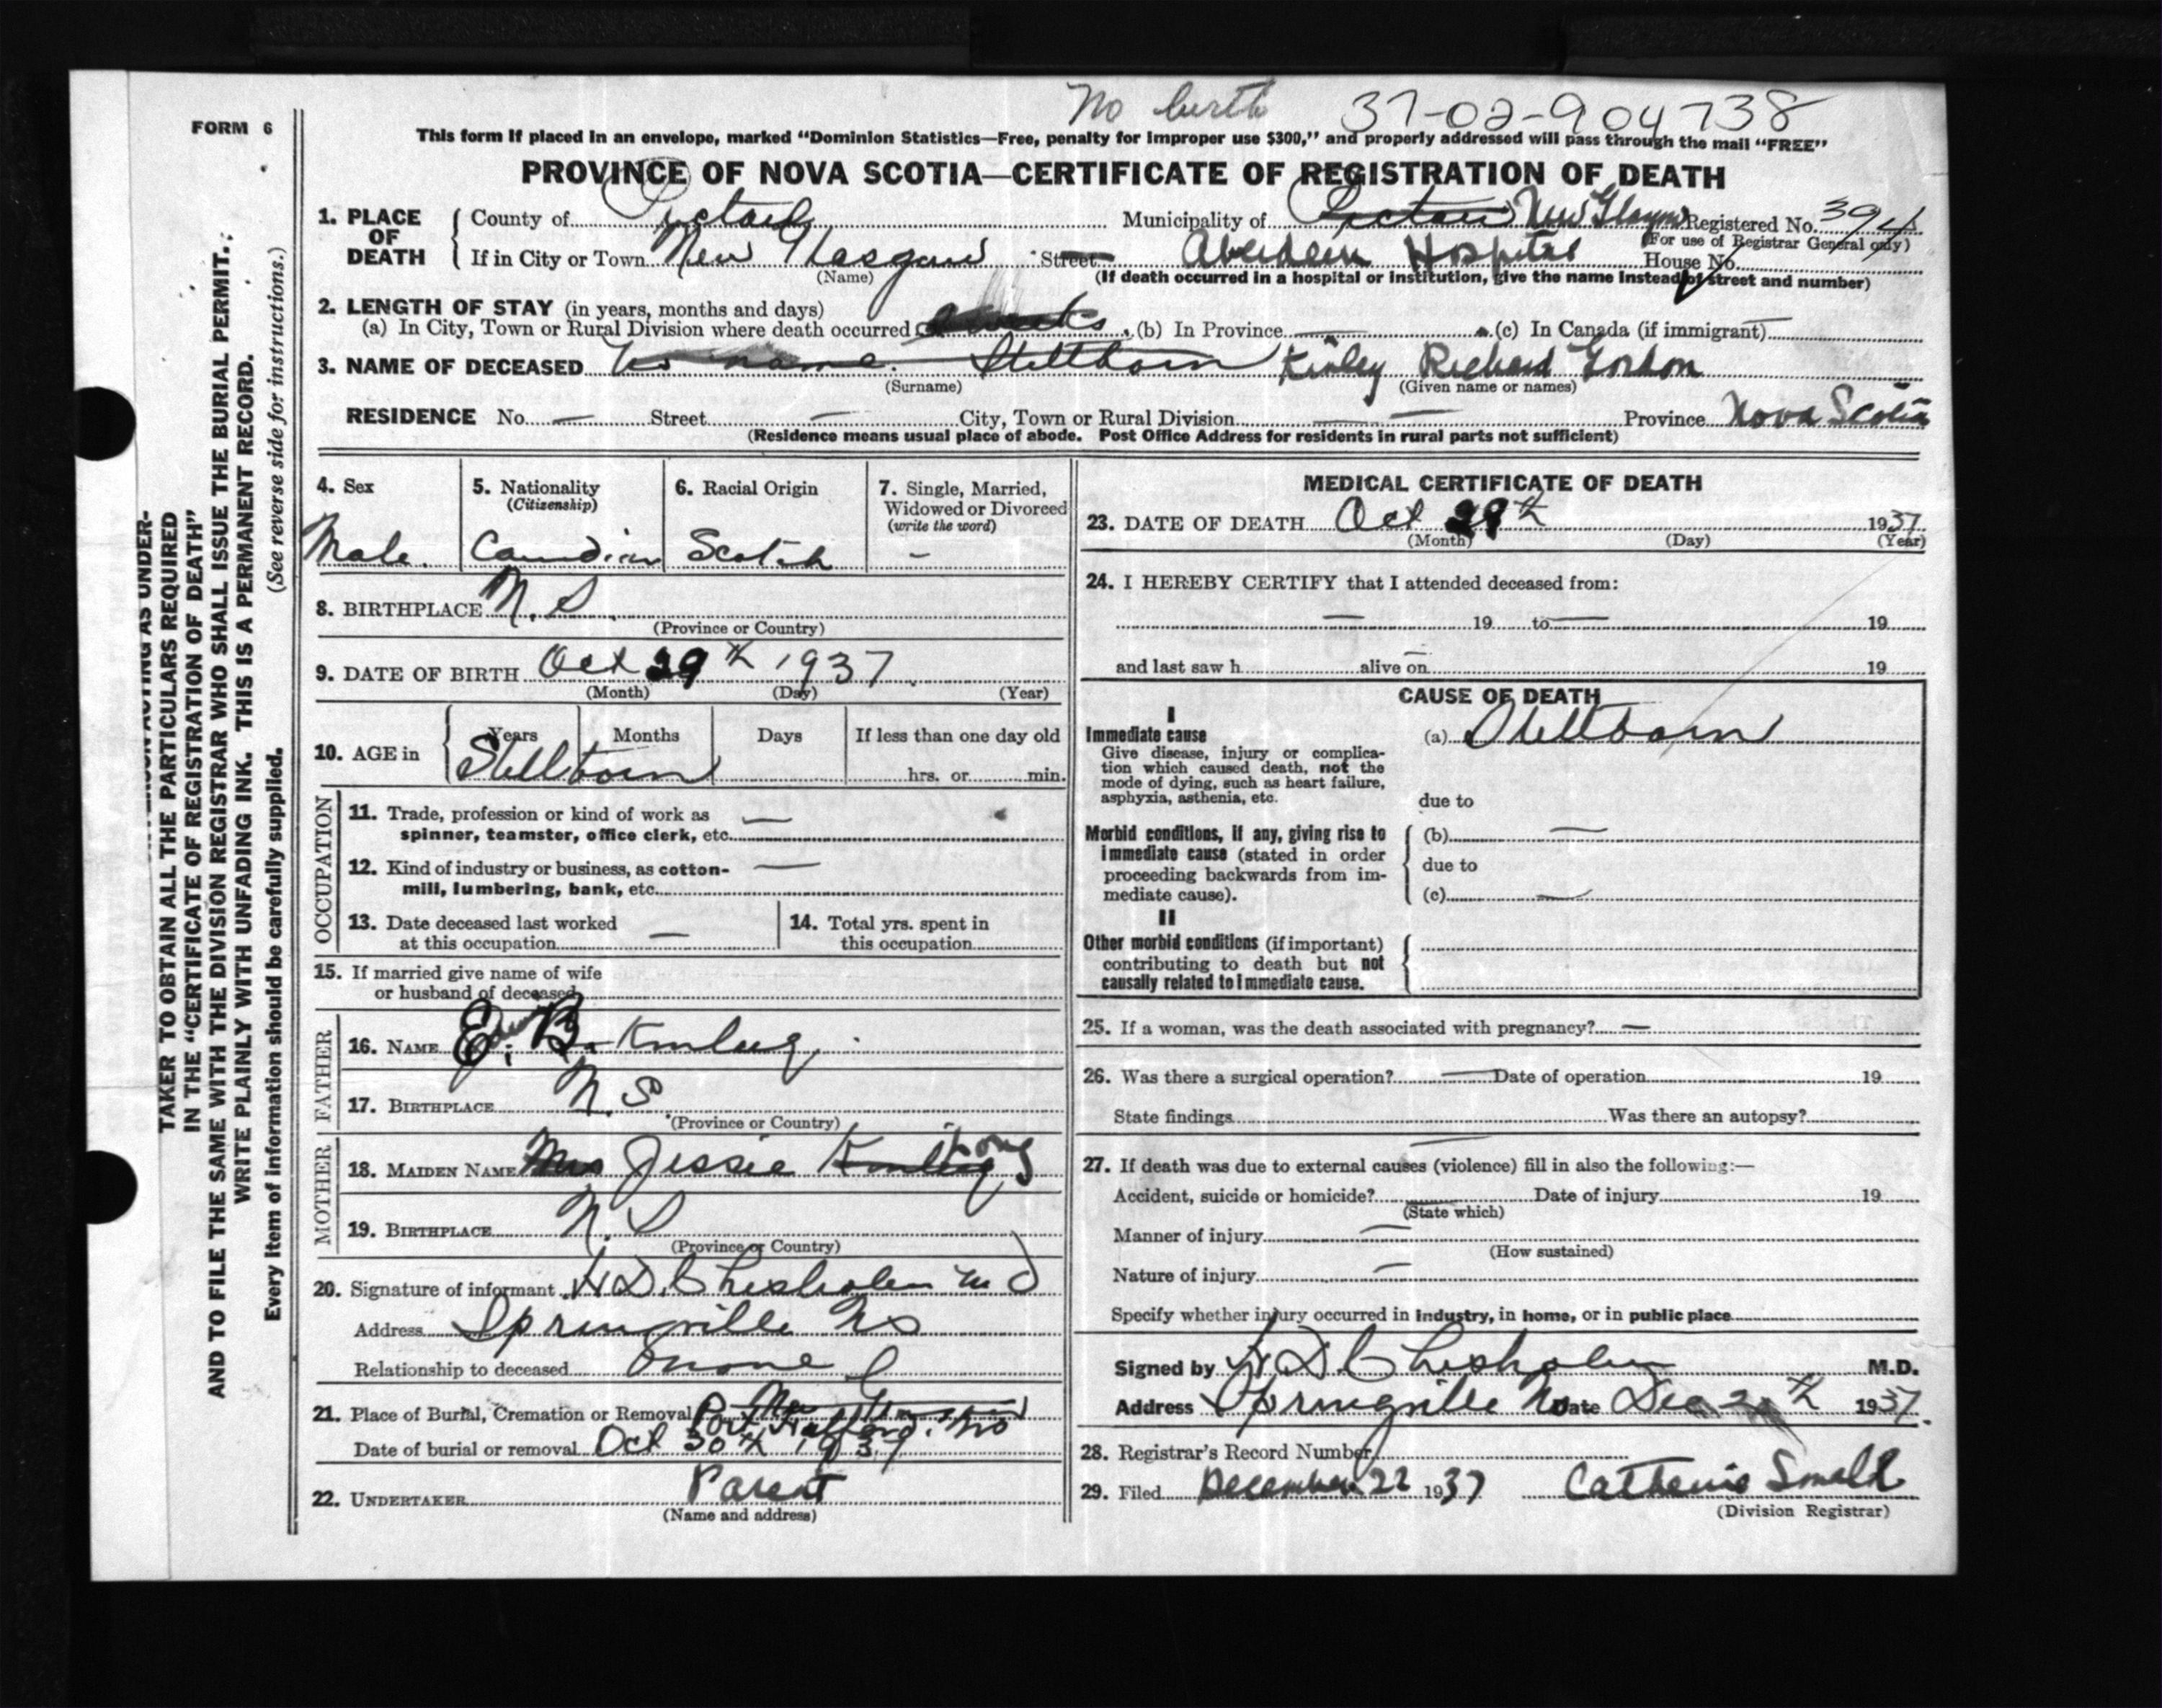 No birth 37-02-904738
FORM 6
This form if placed in an envelope, marked “Dominion Statistics—Free, penalty for improper use $300,” and properly addressed will pass through the mail “FREE”
PROVINCE OF NOVA SCOTIA—CERTIFICATE OF REGISTRATION OF DEATH
1. PLACE OF DEATH
County of Pictou Municipality of Pictou New Glasgow Registered No. 394
(For use of Registrar General only)
If in City or Town New Glasgow Street Aberdeen Hospital House No.
(Name) (If death occurred in a hospital or institution, give the name instead of street and number)
2. LENGTH OF STAY (in years, months and days)
(a) In City, Town or Rural Division where death occurred weeks (b) In Province — (c) In Canada (if immigrant) —
3. NAME OF DECEASED No name. Stillborn Kinley Richard Gordon
(Surname) (Given name or names)
RESIDENCE No. — Street — City, Town or Rural Division — — Province Nova Scotia
(Residence means usual place of abode. Post Office Address for residents in rural parts not sufficient)
4. Sex 5. Nationality (Citizenship) 6. Racial Origin 7. Single, Married, Widowed or Divorced (write the word)
Male. Canadian Scotch –
8. BIRTHPLACE N. S.
(Province or Country)
9. DATE OF BIRTH Oct 29th 1937.
(Month) (Day) (Year)
10. AGE in Years Months Days If less than one day old
Stillborn hrs. or min.
OCCUPATION
11. Trade, profession or kind of work as —
spinner, teamster, office clerk, etc.
12. Kind of industry or business, as cotton- —
mill, lumbering, bank, etc.
13. Date deceased last worked 14. Total yrs. spent in
at this occupation — this occupation
15. If married give name of wife
or husband of deceased
FATHER
16. NAME E. B. Kinley
17. BIRTHPLACE N. S.
(Province or Country)
MOTHER
18. MAIDEN NAME Mrs Jessie
19. BIRTHPLACE N. S
(Province or Country)
20. Signature of informant H D. Chisholm M D
Address Springville NS
Relationship to deceased none
21. Place of Burial, Cremation or Removal
Date of burial or removal Oct 30th 1937
22. UNDERTAKER Parent
(Name and address)
MEDICAL CERTIFICATE OF DEATH
23. DATE OF DEATH Oct 29th 1937
(Month) (Day) (Year)
24. I HEREBY CERTIFY that I attended deceased from:
— 19 to — 19
and last saw h alive on – 19
CAUSE OF DEATH
I
Immediate cause (a) Stillborn
Give disease, injury or complica-
tion which caused death, not the
mode of dying, such as heart failure,
asphyxia, asthenia, etc.
due to
Morbid conditions, if any, giving rise to (b) —
immediate cause (stated in order
proceeding backwards from im- due to
mediate cause). (c) —
II
Other morbid conditions (if important)
contributing to death but not
causally related to immediate cause.
25. If a woman, was the death associated with pregnancy? —
26. Was there a surgical operation? — Date of operation 19
State findings Was there an autopsy?
27. If death was due to external causes (violence) fill in also the following:—
Accident, suicide or homicide? Date of injury 19
(State which)
Manner of injury —
(How sustained)
Nature of injury —
Specify whether injury occurred in industry, in home, or in public place
Signed by H D. Chisholm M.D.
Address Springville NS Date Dec 1937.
28. Registrar's Record Number
29. Filed December 22 1937 Catherine Small
(Division Registrar)
TAKER TO OBTAIN ALL THE PARTICULARS REQUIRED
IN THE “CERTIFICATE OF REGISTRATION OF DEATH”
AND TO FILE THE SAME WITH THE DIVISION REGISTRAR WHO SHALL ISSUE THE BURIAL PERMIT.
WRITE PLAINLY WITH UNFADING INK. THIS IS A PERMANENT RECORD.
Every item of information should be carefully supplied. (See reverse side for instructions.)